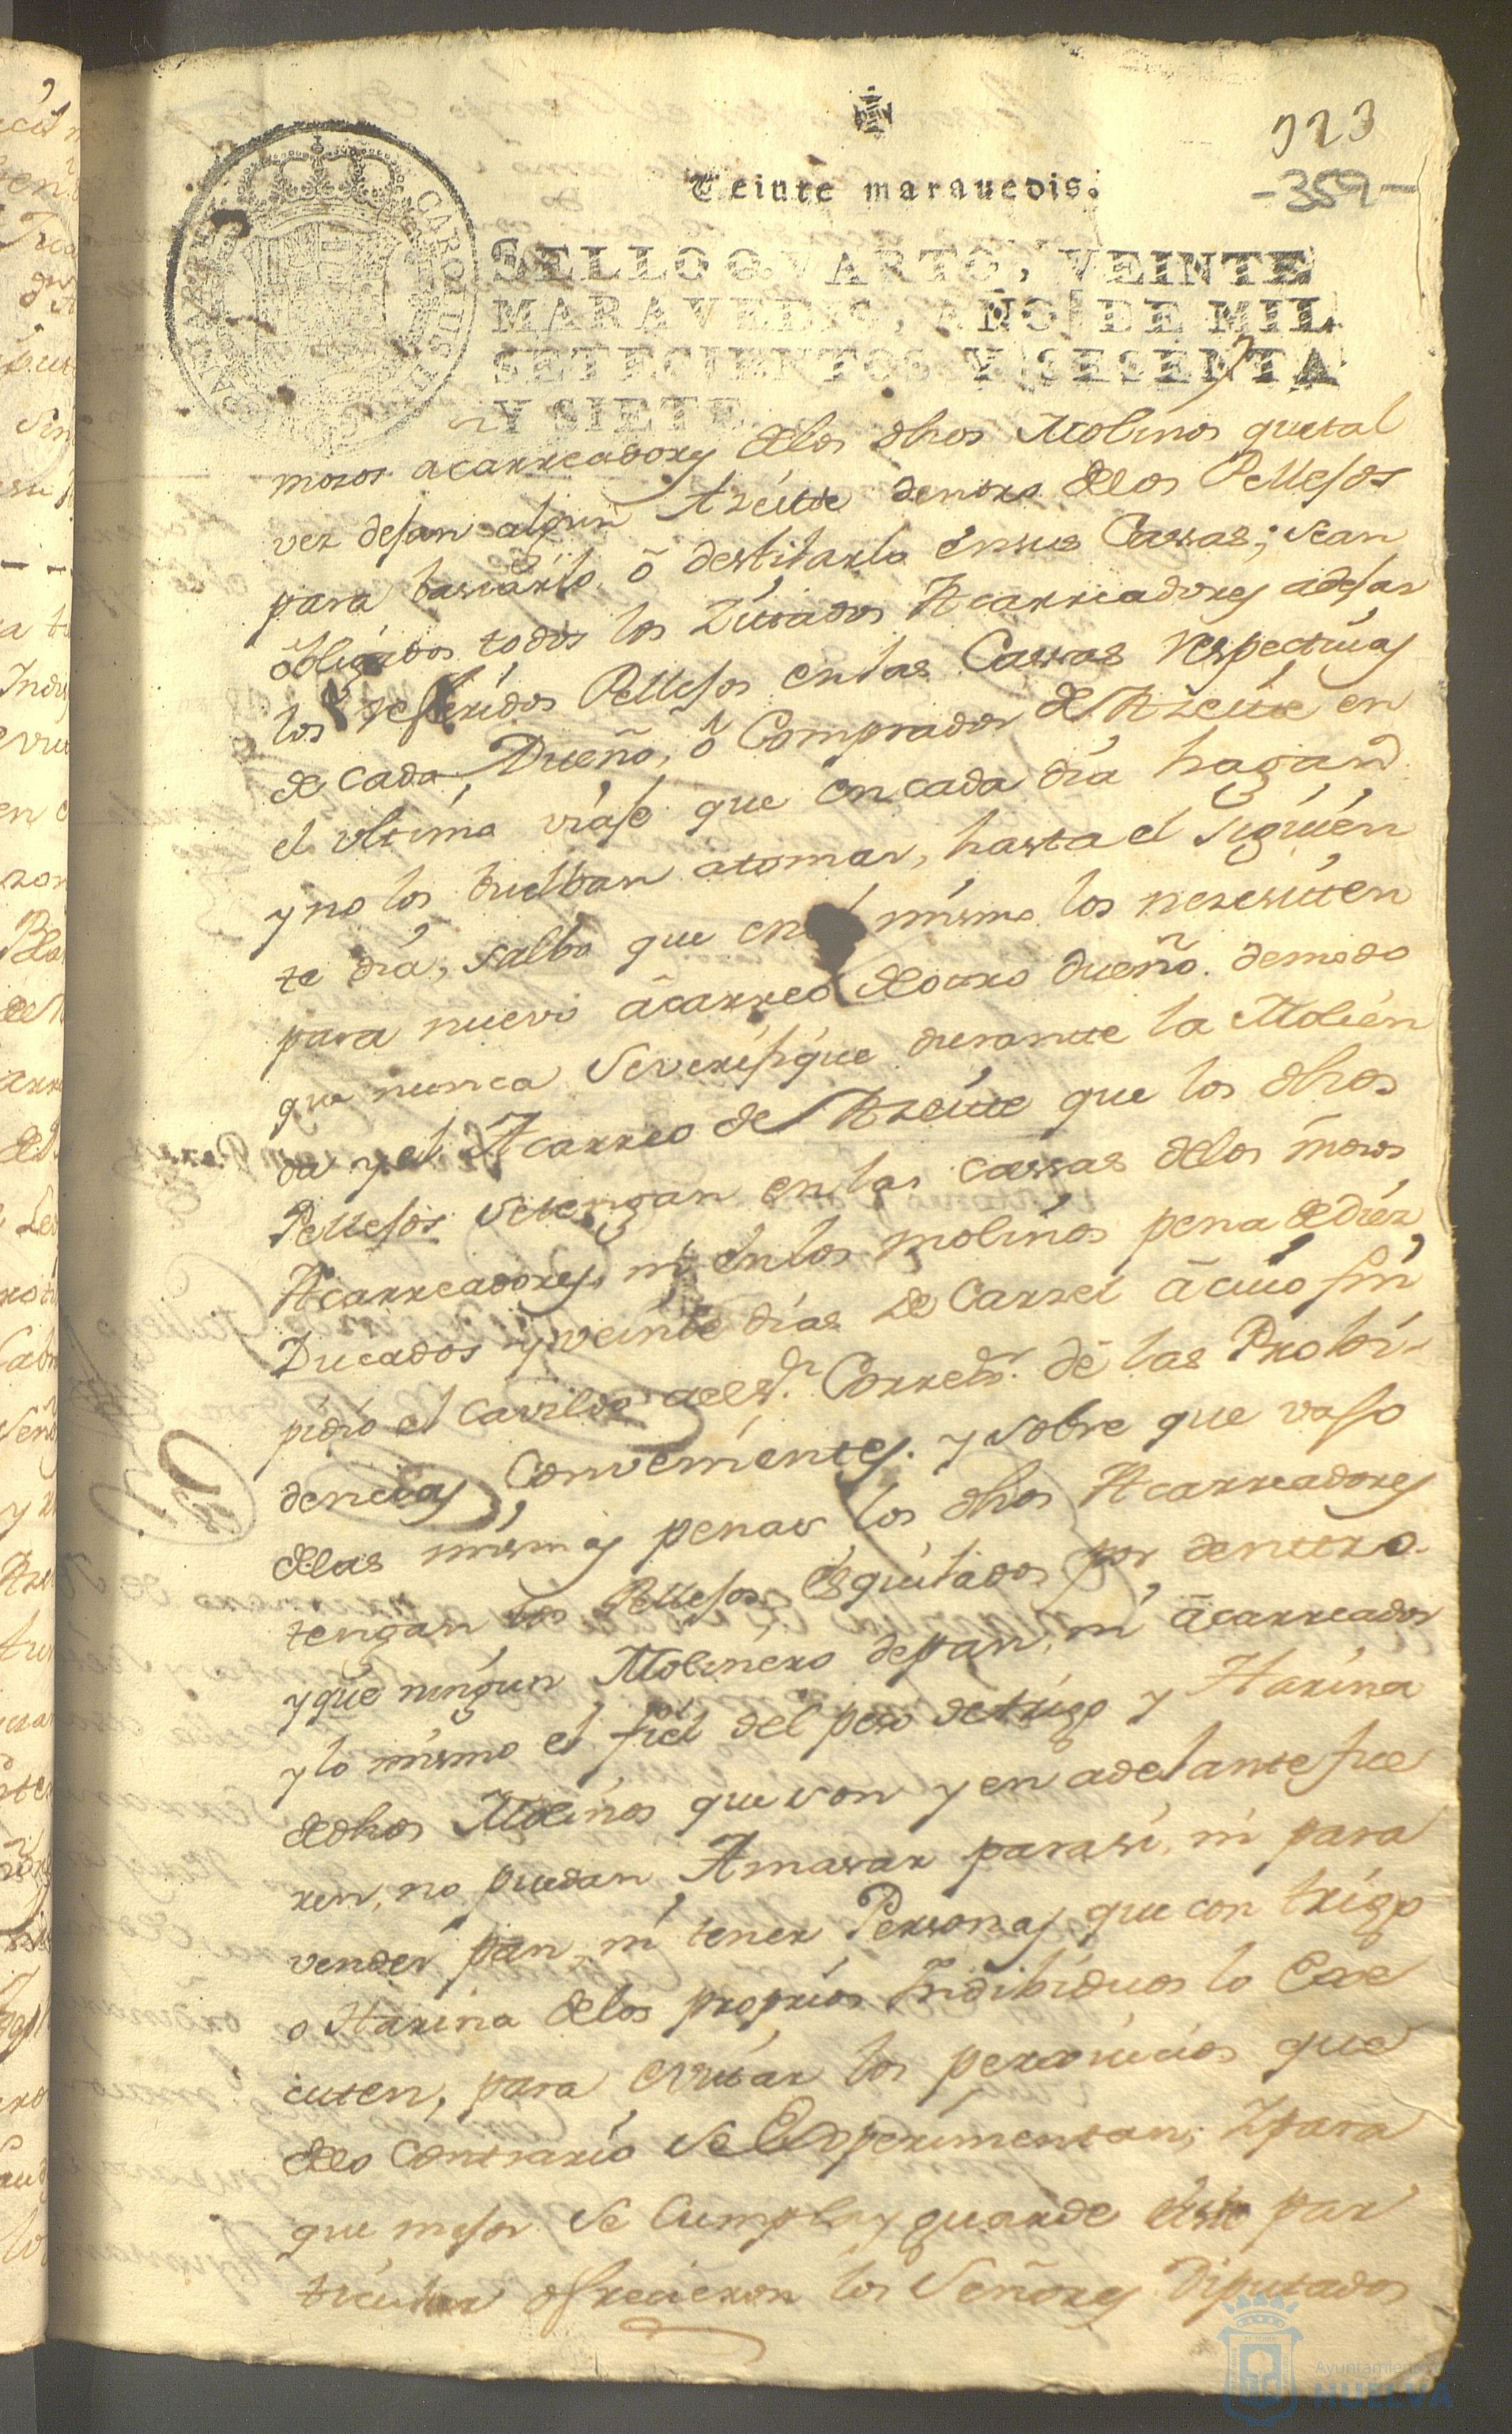 323
-359-
Veinte marauedis.
SELLO QVARTO, VEINTE
MARAVEDIS, AÑO DE MIL
SETECIENTOS Y SESENTA
Y SIETE
mozos acarreadores delos dhos Molinos que tal
vez dejan algun Azeite dentro delos Pellejos
para basiarlo, ó destilarlo ensus Cassas; sean
obligados todos los Zitados Acarreadores adejar
los referidos Pellejos enlas Cassas respectivas
de cada Dueño, ó Comprador de Azeite en
el vltimo viaje que encada dia hagan
y no los buelban atomar, hasta el siguien
te dia, salbo que en el mismo los nezesiten
para nuevo acarreo deotro dueño. demodo
que nunca severifique durante la Molien
da y el Acarreo de Azeite que los dhos
Pellejos setengan enlas cassas delos mozos
Acarreadores, ni enlos molinos pena de diez
Ducados y veinte dias de Carzel á cuio fin
pidio el Cavildo ael Sr. Corredr. dé las Probi-
dencias Convenientes. y sobre que vajo
delas mismas penas los dhos Acarreadores
tengan los Pellejos esquilados por dentro.
y que ningun Molinero depan, ni acarreador
y lo mismo el fiel del peso detrigo y Harina
dedhos Molinos que son y en adelante fue
ren, no puedan Amasar parasi, ni para
vender pan, ni tener Personas que con trigo
o Harina delos proprios Indibiduos lo exe
cuten, para evitar los perxuicios que
delo contrario se Experimentan; Y para
que mejor se Cumpla y guarde este par
ticular ofrecieron los Señores Diputados
Ayuntamiento
HUELVA